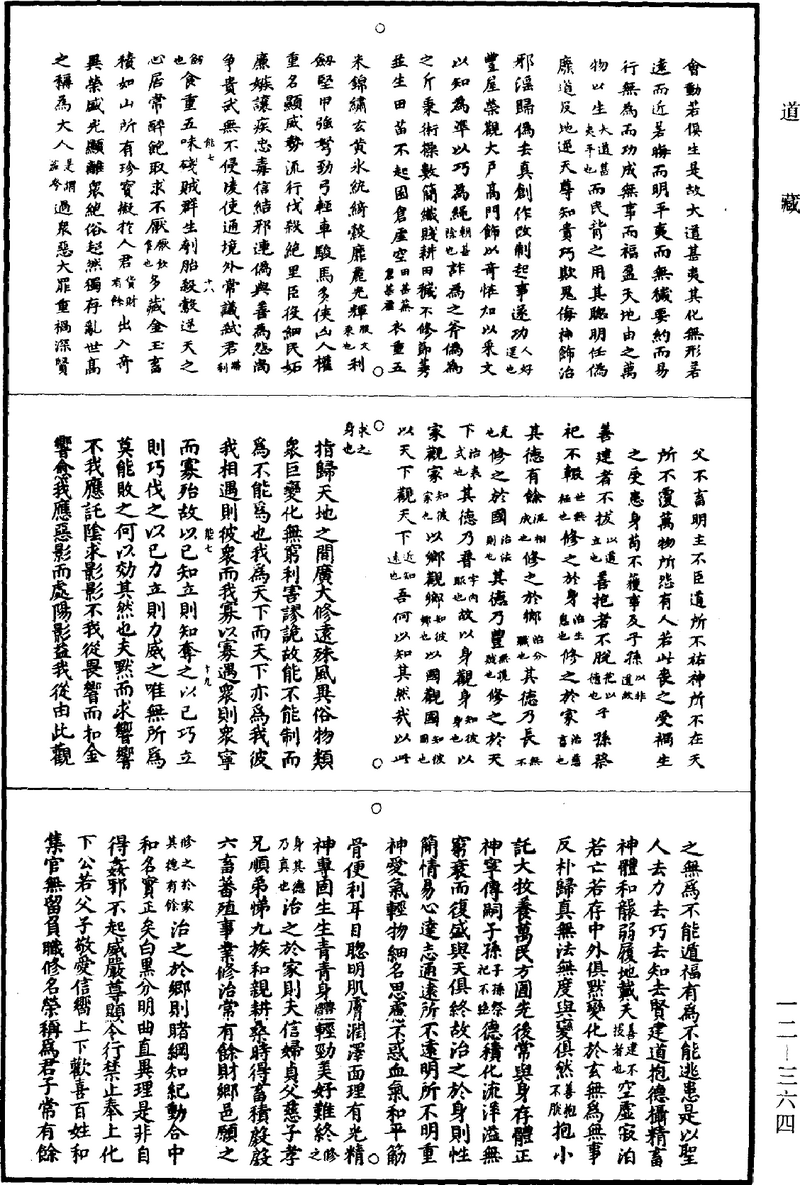 會動若俱生是故大道甚夷其化無形若
遠而近若晦而明平夷而無穢要約而易
行無為而功成無事而福盈天地由之萬
物以生大道甚夷平也而民背之用其聰明任偽
廢道反地逆天尊知貴巧欺鬼侮神飾治
邪淫歸偽去真創作改制起事逐功人好逕也
豐屋榮觀大戶高門飾以奇怪加以采文
以知為準以巧為繩朝甚陰也詐為之斧偽為
之斤秉術操數簡孅賤耕田穢不修節莠
並生田苗不起囷倉虛空田甚蕪倉甚虛衣重五
采錦繡玄黃冰紈綺縠靡麗光輝服文采也利
劒堅甲強弩勁弓輕車駿馬多俠凶人權
重名顯威勢流行伐殺絕里臣役細民妬
廉嫉讓疾忠毒信結邪連偽與善為怨尚
爭貴武無不侵凌使通境外常議弑君帶利
劒也食重五味殘賊群生刳胎殺鷇逆天之
能七 十八
心居常醉飽取求不厭厭飲食也多藏金玉畜
積如山所有珍寶擬於人君貨財有餘出入奇
異榮威光顯離衆絕俗超然獨存亂世高
之稱為大人是謂盜夸過衆惡大罪重禍深賢
父不畜明主不臣道所不祐神所不在天
所不覆萬物所怨有人若此喪之受禍生
之受患身苟不獲事及子孫以非道然
善建者不拔以道立也善抱者不脫抱以德也子孫祭
祀不輟世無極也修之於身治生息也修之於家治慈畜也
其德有餘流相成也修之於鄉治分職也其德乃長無不
克也修之於國治法則也其德乃豐修之於天
下治表式也其德乃普宇內服也故以身觀身知彼身也以
家觀家知彼家也以鄉觀鄉知彼鄉也以國觀國知彼國也
以天下觀天下近知遠也吾何以知其然哉以此
求之身也
指歸天地之間廣大修遠殊風異俗物類
衆巨變化無窮利害謬詭故能不能制而
為不能為也我為天下而天下亦為我彼
我相遇則彼衆而我寡以寡遇衆則衆寧
而寡殆故以己知立則知奪之以己巧立
能七 十九
則巧伐之以己力立則力威之唯無所為
莫能敗之何以効其然也夫默而求響響
不我應託陰求影影不我從畏響而扣金
響愈我應惡影而處陽影益我從由此觀
之無為不能遁福有為不能逃患是以聖
人去力去巧去知去賢建道抱德攝精畜
神體和襲弱履地戴天善建不拔者也空虛寂泊
若亡若存中外俱默變化於玄無為無事
反朴歸真無法無度與變俱然善抱不脫抱小
託大牧養萬民方圓先後常與身存體正
神寧傳嗣子孫子孫祭祀不絕德積化流洋溢無
窮衰而復盛與天俱終故治之於身則性
簡情易心達志通遠所不遠明所不明重
神愛氣輕物細名思慮不惑血氣和平筋
骨便利耳目聰明肌膚潤澤面理有光精
神專固生生青青身體輕勁美好難終修之
身其德乃真也治之於家則夫信婦貞父慈子孝
兄順弟悌九族和親耕桑時得畜積殷殷
六畜蕃殖事業修治常有餘財鄉邑願之
修之於家其德有餘治之於鄉則睹綱知紀動合中
和名實正矣白黑分明曲直異理是非自
得姦邪不起威嚴尊顯令行禁止奉上化
下公若父子敬愛信嚮上下歡喜百姓和
集官無留負職修名榮稱為君子常有餘
道藏
一二—三六四